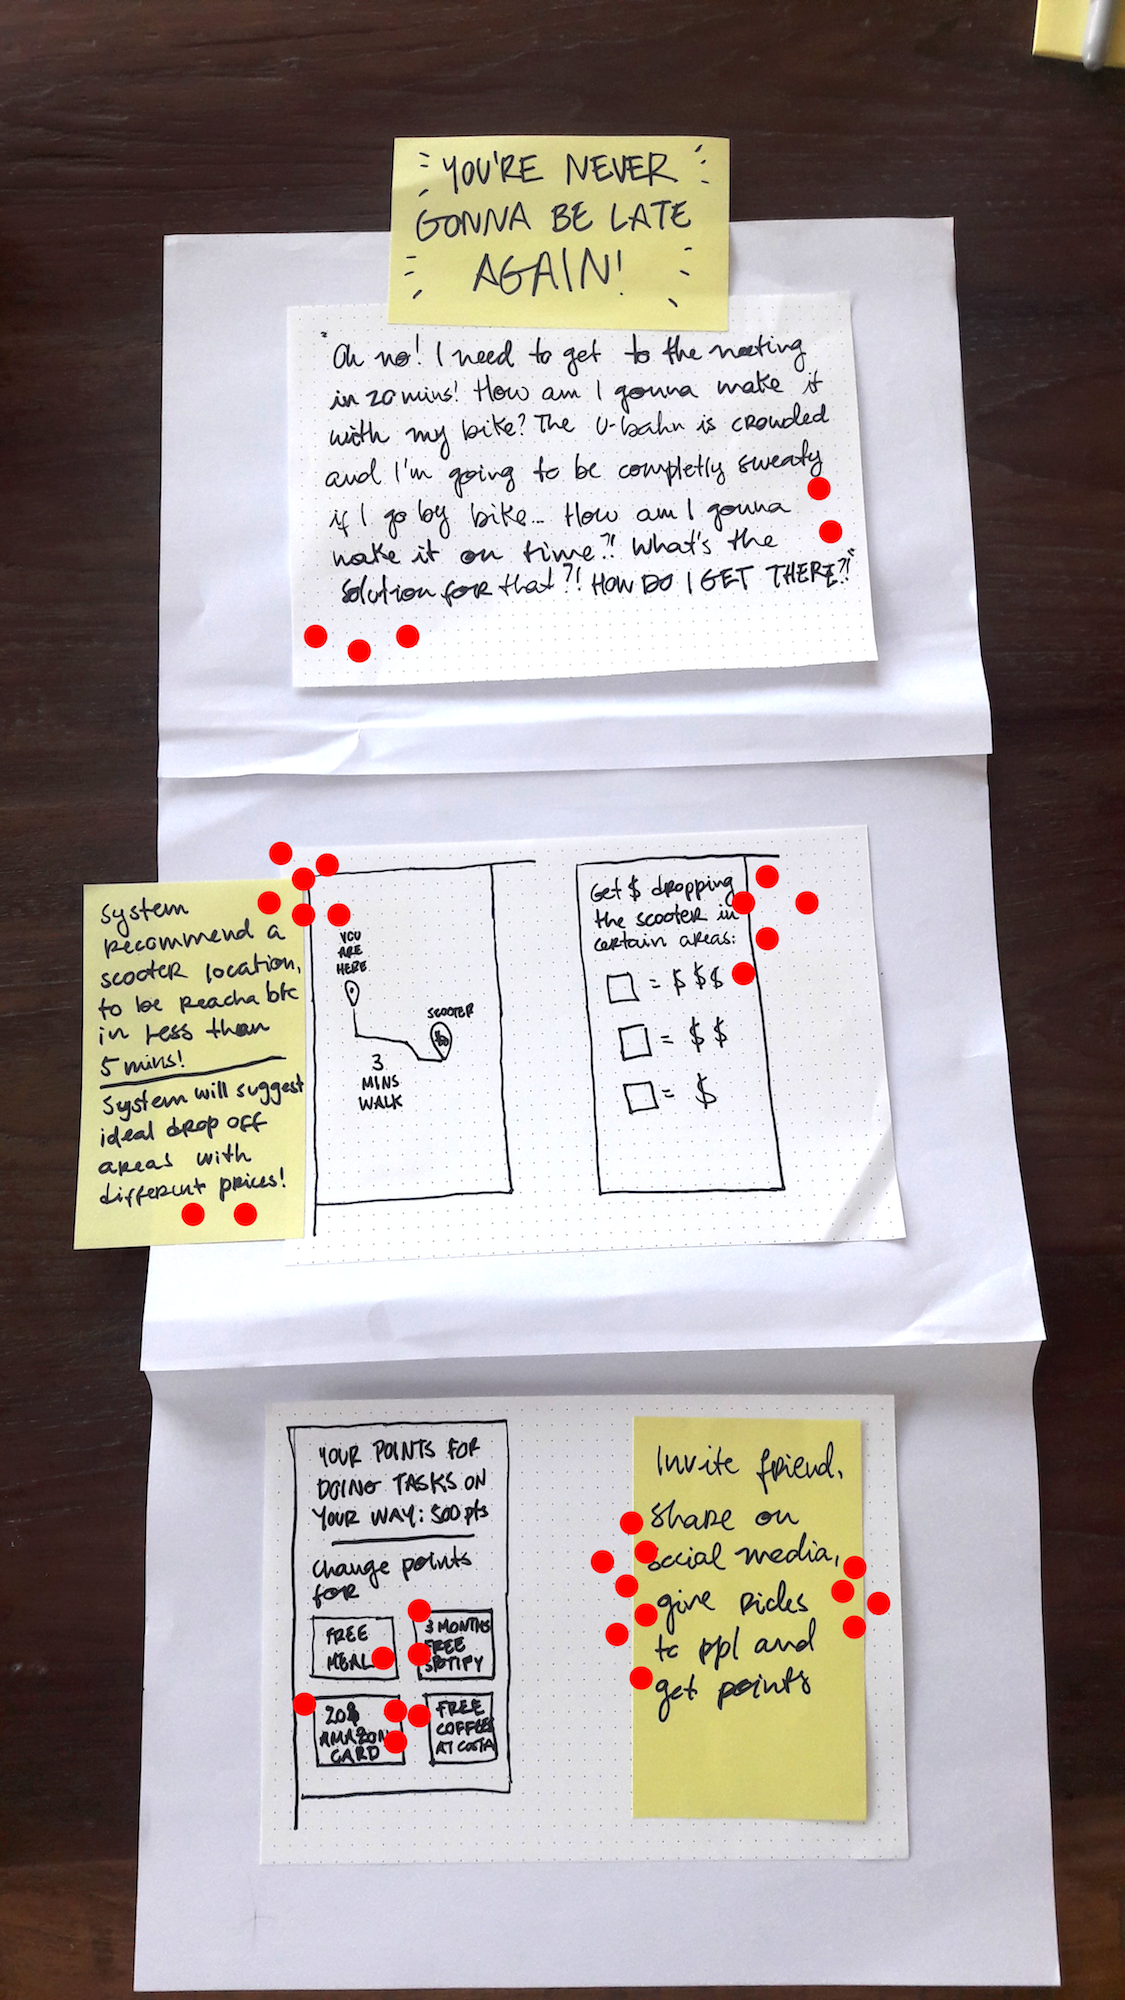 YOU'RE NEVER
GONNA BE LATE
AGAIN!
"Oh no! I need to get to the meeting
in 20 mins! How am I gonna make it
with my bike? The U-bahn is crowded
and I'm going to be completly sweaty
if I go by bike... How am I gonna
make it on time?! What's the
solution for that?! HOW DO I GET THERE?!"
System
recommend a
scooter location,
to be reachable
in less than
5 mins!
System will suggest
ideal drop off
areas with
different prices!
YOU
ARE
HERE
SCOOTER
3
MINS
WALK
Get $ dropping
the scooter in
certain areas:
= $$$
= $$
= $
YOUR POINTS FOR
DOING TASKS ON
YOUR WAY: 500 pts
Change points
for
FREE
MEAL
3 MONTHS
FREE
SPOTIFY
20$
AMAZON
CARD
FREE
COFFEE
AT COSTA
Invite friend,
share on
social media,
give rides
to ppl and
get points